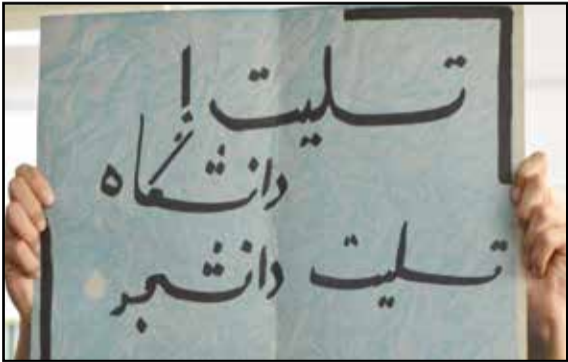 تسلیت!
دانشگاه
تسلیت دانشجو